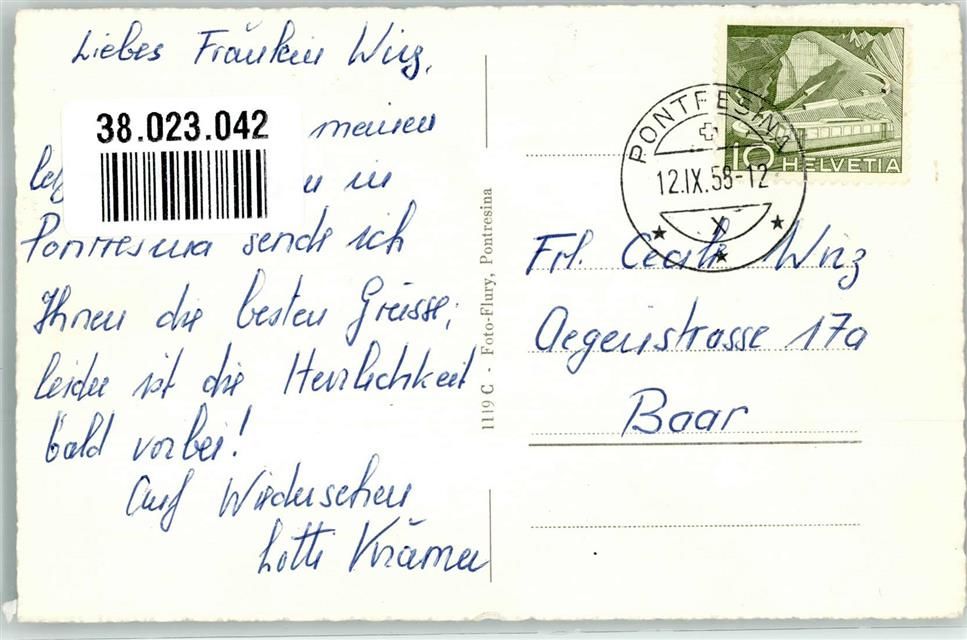 Liebes Fräulein Winz,
38.023.042
meinen
in
Pontresina sende ich
Ihnen die besten Grüsse;
leider ist die Herrlichkeit
bald vorbei!
Auf Wiedersehen
Lotti Krämer
1119 C - Foto-Flury, Pontresina
PONTRESINA
12.IX.58-12
X
10 HELVETIA
Frl. Cecile Winz
Aegeristrasse 17a
Baar